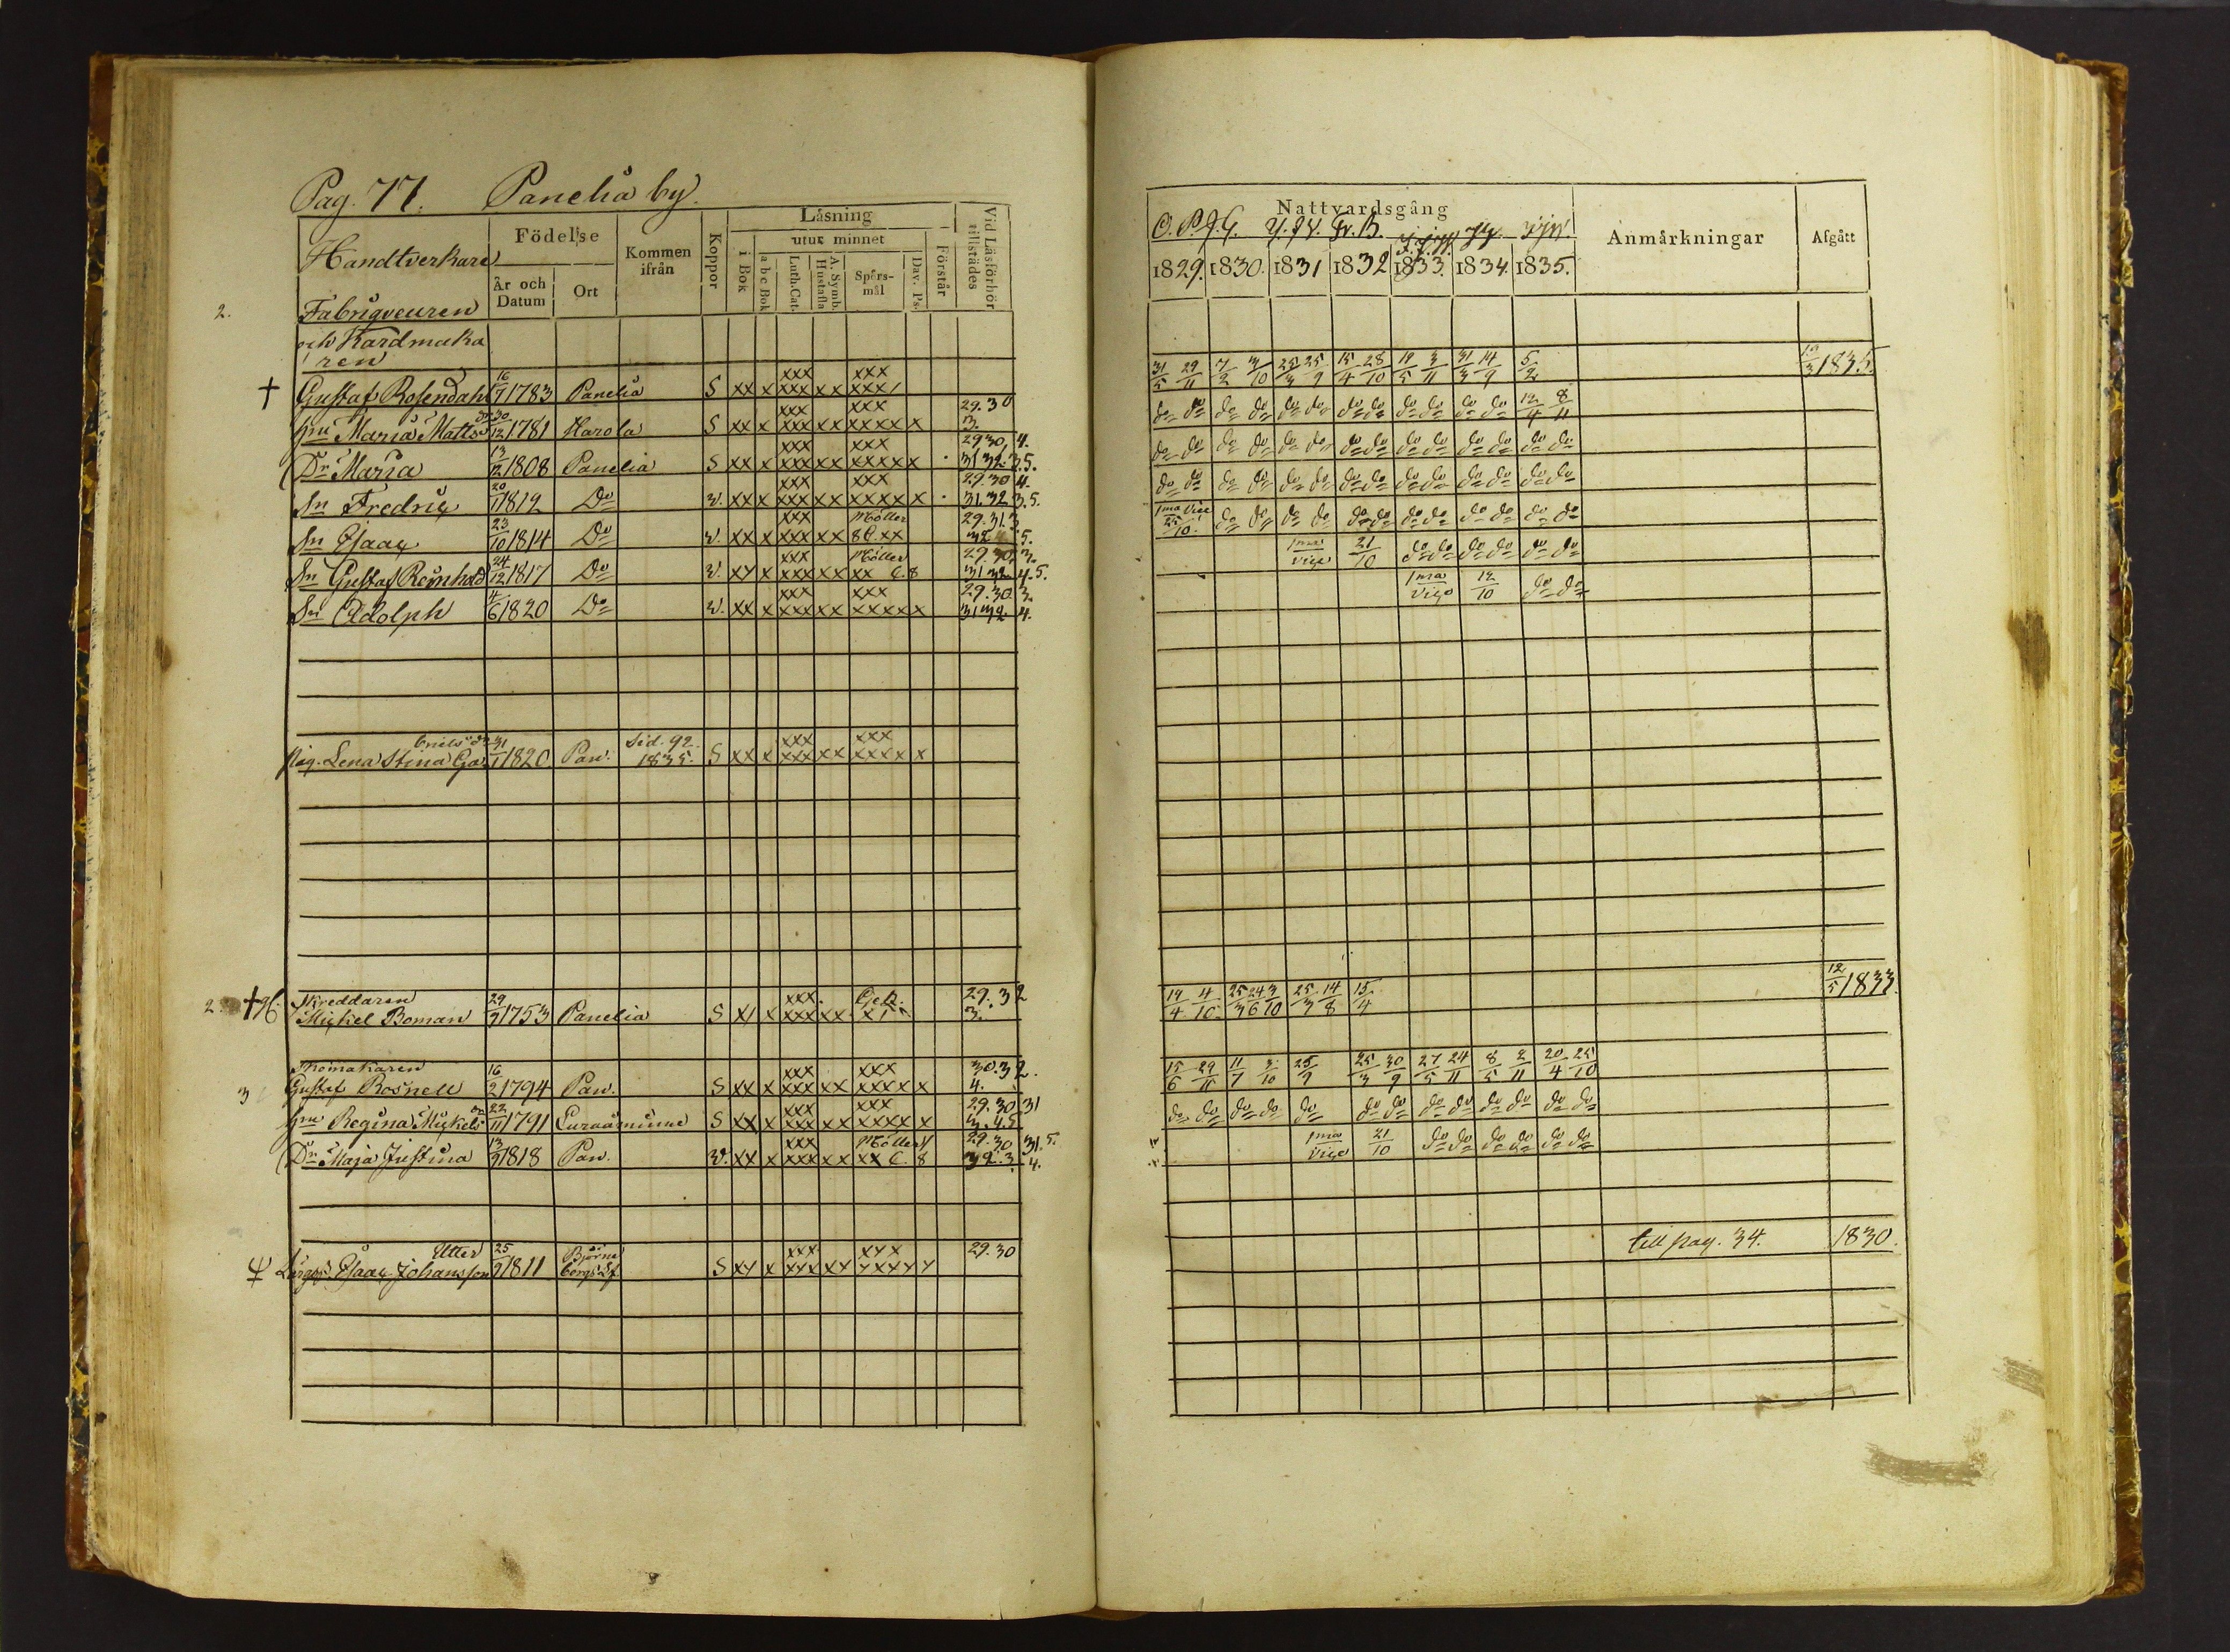 Pag. 77. Panelia by.
Handtverkare
Födelse
År och Datum
Ort
Kommen ifrån
Koppor
Läsning
i Bok
utur minnet
a b c Bok
Luth. Cat.
A. Symb. Hustafla
Spörs-mål
Dav. Ps.
Förstår
Vid Läsförhör tillstädes
2. Fabriqveuren
och Kardmaka
ren
† Gustaf Rosendahl 16/7 1783 Panelia S xx x xxx xxx xx xxx xxx
Hru Maria Mattsdr 30/12 1781 Harola S xx x xxx xxx xx xxx xxxx x 29. 30 3.
Dr Maria 13/12 1808 Panelia S xx x xxx xxx xx xxx xxxx x 29 30 4. 31 32. 3. 5.
Sn Fredric 20/7 1812 Do v. xx x xxx xxx xx xxx xxxx x 29. 30 4. 31. 32 3. 5.
Sn Esaac 23/10 1814 Do v. xx x xxx xxx xx Möller 8 C. xx 29. 31. 3. 32 4 5.
Sn Gustaf Reinhold 24/12 1817 Do v. xx x xxx xxx xx Möller xx C. 8 29. 30. 3. 31 32 4. 5.
Sn Adolph 4/6 1820 Do v. xx x xxx xxx xx xxx xxxx x 29. 30. 3. 31 32. 4.
Pig. Lena Stina Gabrielsdr 31/1 1820 Pan. Sid. 92. 1835. S xx x xxx xxx xx xxx xxxx x
2 † 96. Skreddaren
Mickel Boman 29/9 1753 Panelia S x x xxx xxx xx 29. 32 3.
Skomakaren
3 Gustaf Rosnell 16/2 1794 Pan. S xx x xxx xxx xx xxx xxxx x 30. 32. 4.
Hru Regina Mickelsdr 22/11 1791 Euraåminne S xx x xxx xxx xx xxx xxxx x 29. 30 31 3. 4. 5.
Dr Maja Justina 13/9 1818 Pan. v. xx x xxx xxx xx Möller xx C. 8 29. 30 31. 5. 32. 3. 4.
Lärg. Esaac Johansson Utter 25/9 1811 Björneborgs Lf. S xx x xxx xxx xx xxx xxxx x 29. 30
Nattvardsgång
Anmärkningar
Afgått
1829. 1830. 1831 1832 1833. 1834. 1835.
31/5 29/11 7/2 3/10 25/3 25/9 15/4 28/10 19/5 3/11 31/3 14/9 5/2 1835.
do do do do do do do do do do do do 12/4 8/11
do do do do do do do do do do do do do do
do do do do do do do do do do do do do do
1ma vice 25/10. do do do do do do do do do do do do
1ma vice 21/10 do do do do do do
1ma vice 12/10 do do
19/4 4/10 25/3 24/6 3/10 25/3 14/8 15/4 12/5 1833.
15/6 29/11 11/7 3/10 25/9 25/3 30/9 27/5 24/11 8/5 2/11 20/4 25/10
do do do do do do do do do do do do do
1ma vice 21/10 do do do do do do
till pag. 34. 1830.